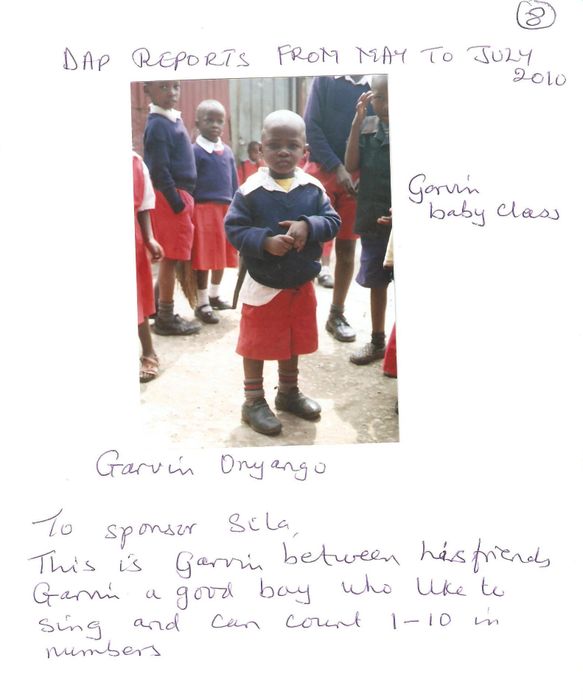 8
DAP REPORTS FROM MAY TO JULY
2010
Garvin
baby class
Garvin Onyango
To sponsor Sila,
This is Garvin between his friends
Garvin a good boy who like to
sing and can count 1-10 in
numbers